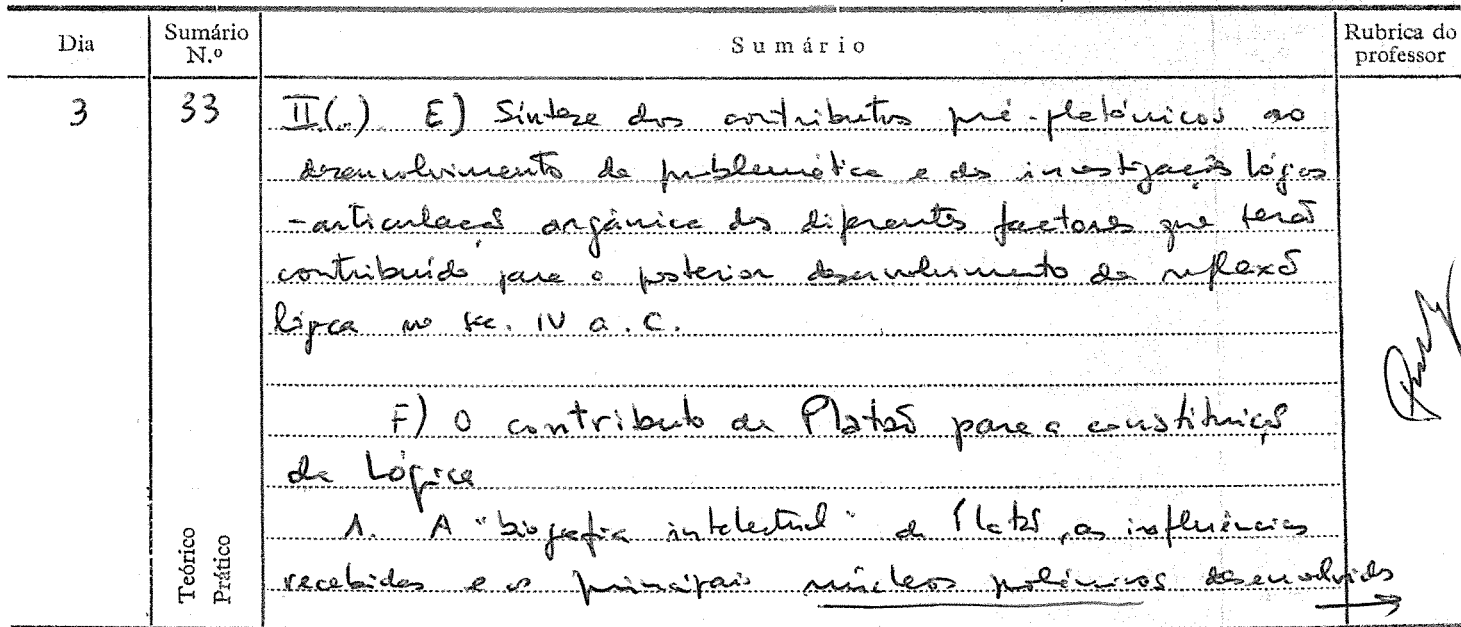 Dia
Sumário N.º
Sumário
Rubrica do professor
3
33
II(..) E) Síntese dos contributos pré-platónicos ao
desenvolvimento da problemática e da investigação lógica
- articulação orgânica dos diferentes factores que terão
contribuído para o posterior desenvolvimento da reflexão
lógica no séc. IV a.C.
F) O contributo de Platão para a constituição
da Lógica
1. A "biografia intelectual" de Platão, as influências
recebidas e os principais núcleos polémicos desenvolvidos →
Teórico
Prático